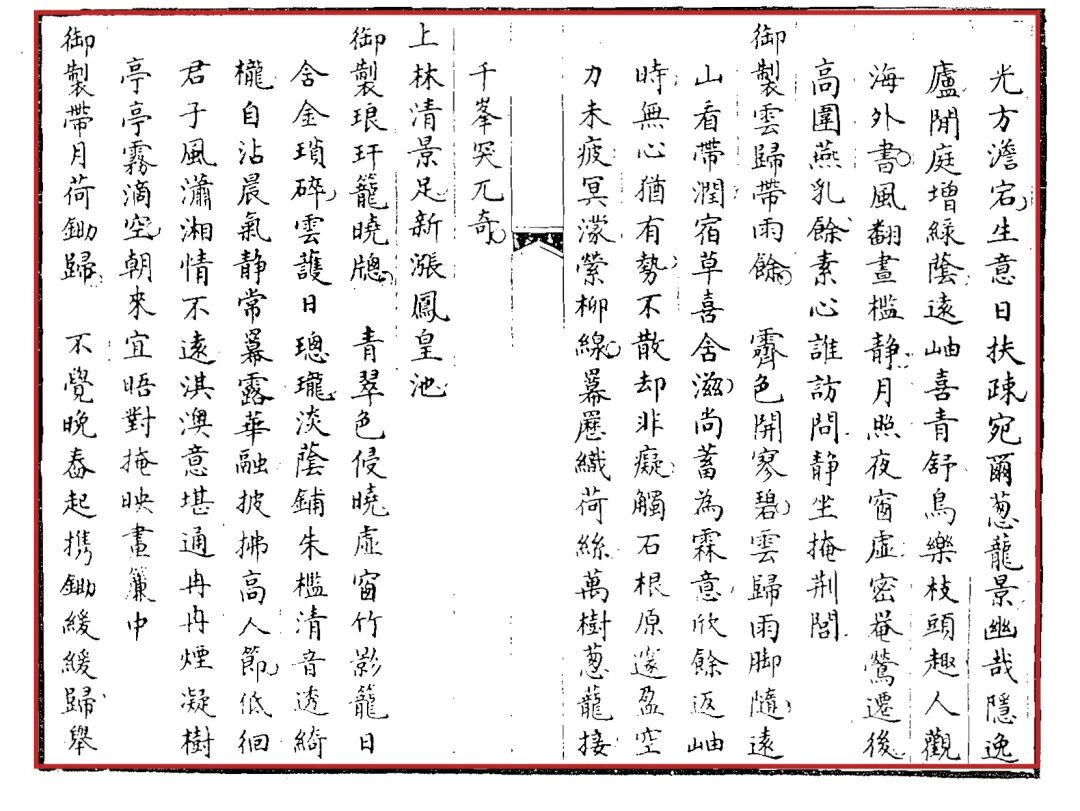 光方澹宕生意日扶疎宛爾葱蘢景幽哉隱逸
廬閒庭增綠蔭遠岫喜青舒鳥樂枝頭趣人觀
海外書風翻畫檻靜月照夜窗虛密菴鶯遷後
高圍燕乳餘素心誰訪問靜坐掩荆閭
御製雲歸帶雨餘 霽色開寥碧雲歸雨脚隨遠
山看帶潤宿草喜含滋尚蓄為霖意欣餘返岫
時無心猶有勢不散却非癡觸石根原邃盈空
力未疲冥濛縈柳線羃䍥織荷絲萬樹葱蘢接
千峯突兀奇
上林清景足新漲鳳皇池
御製琅玕籠曉牕 青翠色侵曉虛窗竹影籠日
含金瑣碎雲護日璁瓏淡蔭鋪朱檻清音透綺
櫳自沾晨氣靜常羃露華融披拂高人節低徊
君子風瀟湘情不遠淇澳意堪通冉冉煙凝樹
亭亭霧滴空朝來宜晤對掩映畫簾中
御製帶月荷鋤歸 不覺晚舂起携鋤緩緩歸舉